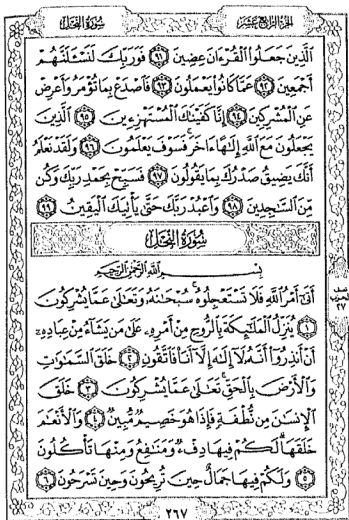 سُورَةُ النَّحْلِ الجُزْءُ الرَّابِعَ عَشَرَ
الَّذِينَ جَعَلُوا الْقُرْءَانَ عِضِينَ ٩١ فَوَرَبِّكَ لَنَسْـَٔلَنَّهُمْ
أَجْمَعِينَ ٩٢ عَمَّا كَانُوا يَعْمَلُونَ ٩٣ فَاصْدَعْ بِمَا تُؤْمَرُ وَأَعْرِضْ
عَنِ الْمُشْرِكِينَ ٩٤ إِنَّا كَفَيْنَاكَ الْمُسْتَهْزِءِينَ ٩٥ الَّذِينَ
يَجْعَلُونَ مَعَ اللَّهِ إِلَـٰهًا ءَاخَرَ فَسَوْفَ يَعْلَمُونَ ٩٦ وَلَقَدْ نَعْلَمُ
أَنَّكَ يَضِيقُ صَدْرُكَ بِمَا يَقُولُونَ ٩٧ فَسَبِّحْ بِحَمْدِ رَبِّكَ وَكُن
مِّنَ السَّـٰجِدِينَ ٩٨ وَاعْبُدْ رَبَّكَ حَتَّىٰ يَأْتِيَكَ الْيَقِينُ ٩٩
سُورَةُ النَّحْلِ
بِسْمِ اللَّهِ الرَّحْمَـٰنِ الرَّحِيمِ
أَتَىٰ أَمْرُ اللَّهِ فَلَا تَسْتَعْجِلُوهُ سُبْحَـٰنَهُ وَتَعَـٰلَىٰ عَمَّا يُشْرِكُونَ
١ يُنَزِّلُ الْمَلَـٰئِكَةَ بِالرُّوحِ مِنْ أَمْرِهِ عَلَىٰ مَن يَشَاءُ مِنْ عِبَادِهِ
أَنْ أَنذِرُوا أَنَّهُ لَا إِلَـٰهَ إِلَّا أَنَا فَاتَّقُونِ ٢ خَلَقَ السَّمَـٰوَاتِ
وَالْأَرْضَ بِالْحَقِّ تَعَـٰلَىٰ عَمَّا يُشْرِكُونَ ٣ خَلَقَ
الْإِنسَـٰنَ مِن نُّطْفَةٍ فَإِذَا هُوَ خَصِيمٌ مُّبِينٌ ٤ وَالْأَنْعَـٰمَ
خَلَقَهَا لَكُمْ فِيهَا دِفْءٌ وَمَنَـٰفِعُ وَمِنْهَا تَأْكُلُونَ
٥ وَلَكُمْ فِيهَا جَمَالٌ حِينَ تُرِيحُونَ وَحِينَ تَسْرَحُونَ ٦
نصف
الحزب
٢٧
٢٦٧